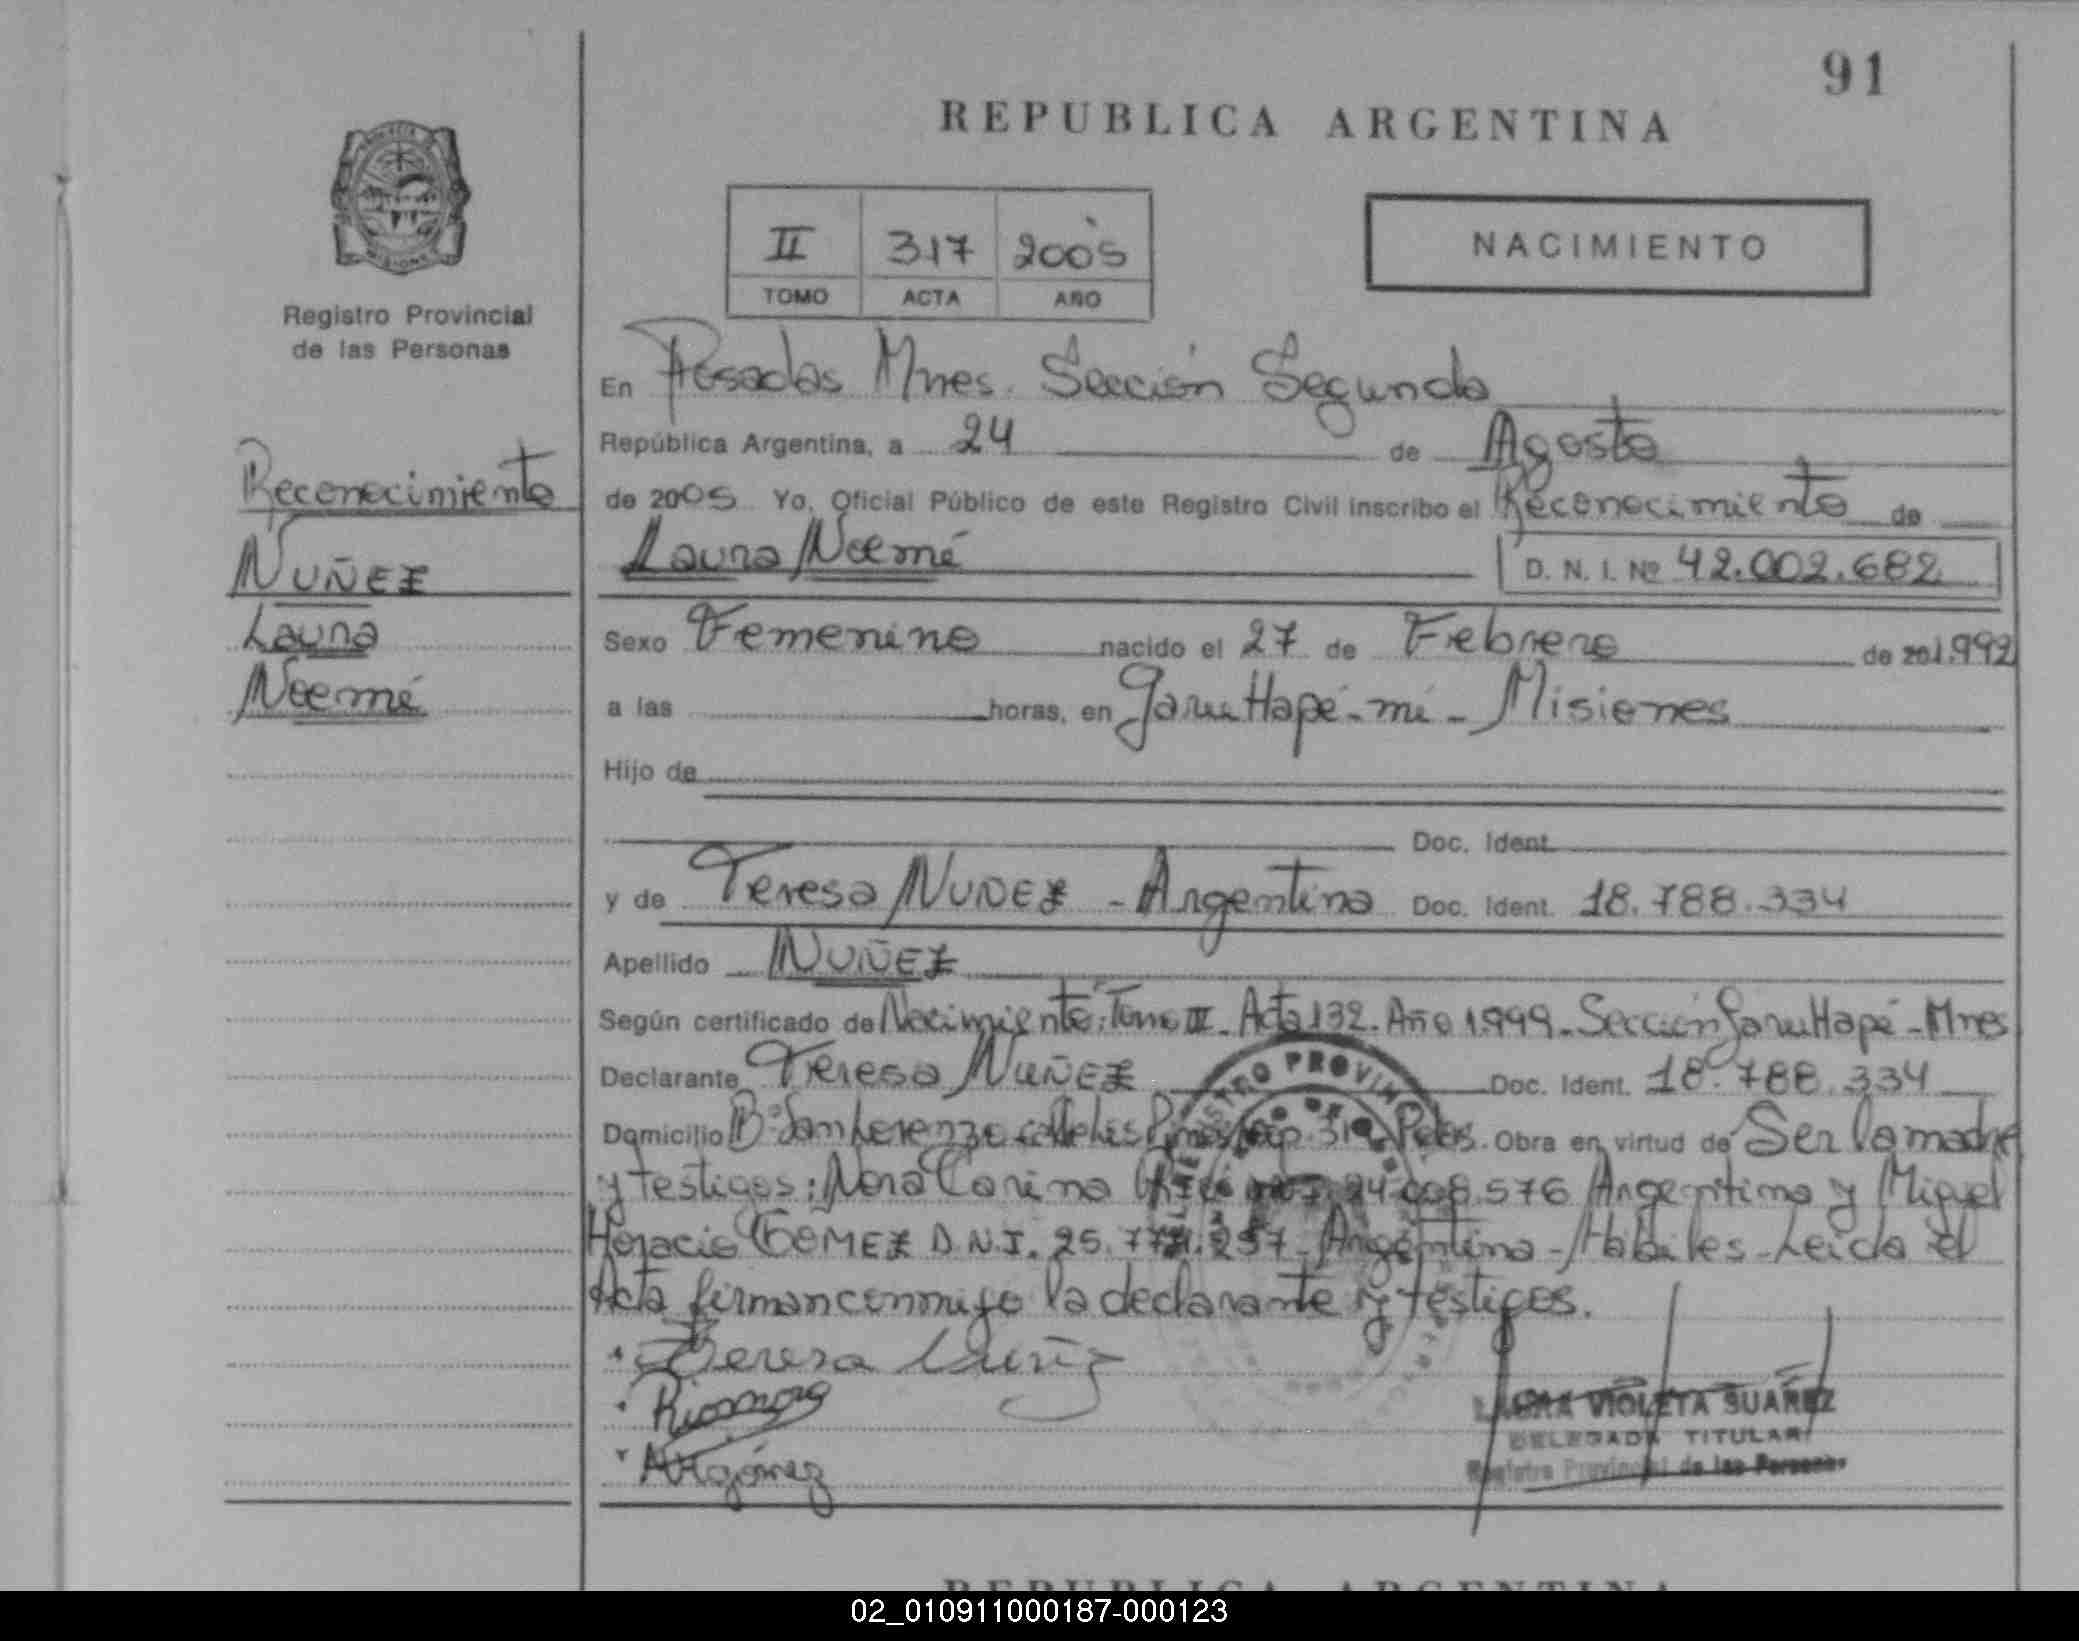 91
REPUBLICA ARGENTINA
II 317 2005
TOMO ACTA AÑO
NACIMIENTO
Registro Provincial
de las Personas
En Posadas Mnes. Sección Segunda
República Argentina, a 24 de Agosto
de 2005 Yo, Oficial Público de este Registro Civil inscribo el Reconocimiento de
Laura Noemí D. N. I. Nº 42.002.682
Reconocimiento
NUÑEZ
Laura
Noemí
Sexo Femenino nacido el 27 de Febrero de 1.992
a las horas, en Garuhapé-mí - Misiones
Hijo de
Doc. Ident.
y de Teresa NUÑEZ - Argentina Doc. Ident. 18.788.334
Apellido NUÑEZ
Según certificado de Nacimiento: Tomo II - Acta 132 - Año 1.999 - Sección Garuhapé - Mnes
Declarante Teresa NUÑEZ Doc. Ident. 18.788.334
Domicilio Bº San Lorenzo Pdas. Obra en virtud de Ser la madre
y testigos: Nora Carina 576 Argentina y Miguel
Horacio GOMEZ D.N.I. 25. 257 - Argentino - Habiles - Leida el
Acta firman conmigo la declarante y testigos.
Teresa Nuñez
LAURA VIOLETA SUAREZ
DELEGADA TITULAR
Registro Provincial de las Personas
REPUBLICA ARGENTINA
02_010911000187-000123